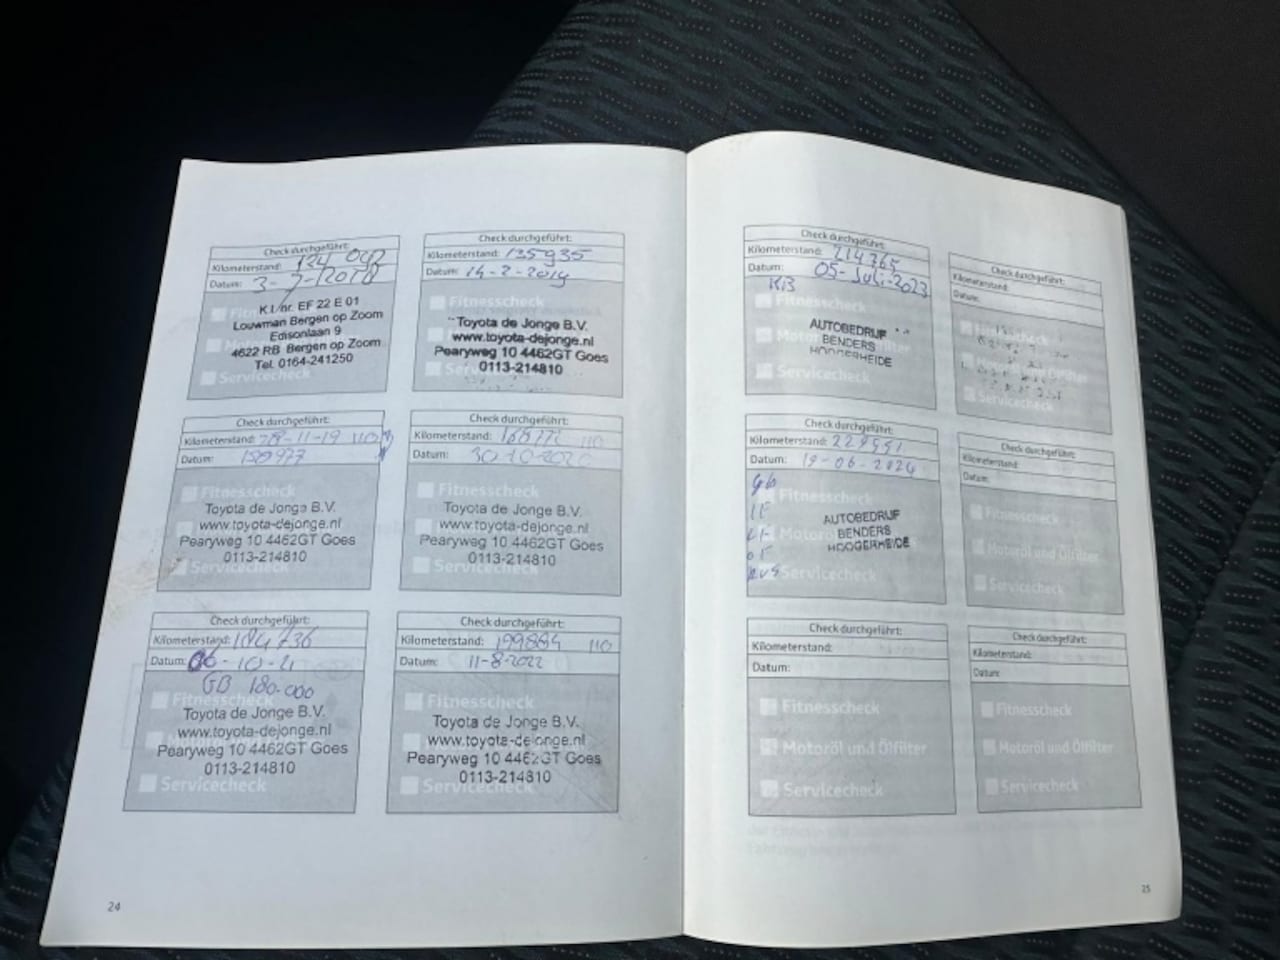 Check durchgeführt:
Kilometerstand: 124 042
Datum: 3-7-2018
K.I./nr. EF 22 E 01
Louwman Bergen op Zoom
Edisonlaan 9
4622 RB Bergen op Zoom
Tel. 0164-241250
Servicecheck
Check durchgeführt:
Kilometerstand: 135935
Datum: 14-2-2019
Fitnesscheck
Toyota de Jonge B.V.
www.toyota-dejonge.nl
Pearyweg 10 4462GT Goes
0113-214810
Check durchgeführt:
Kilometerstand: 28-11-19 110
Datum: 150977
Fitnesscheck
Toyota de Jonge B.V.
www.toyota-dejonge.nl
Pearyweg 10 4462GT Goes
0113-214810
Servicecheck
Check durchgeführt:
Kilometerstand: 110
Datum: 30-10-2020
Fitnesscheck
Toyota de Jonge B.V.
www.toyota-dejonge.nl
Pearyweg 10 4462GT Goes
0113-214810
Servicecheck
Check durchgeführt:
Kilometerstand: 184736
Datum: 06-10-21
GB 180.000
Fitnesscheck
Toyota de Jonge B.V.
www.toyota-dejonge.nl
Pearyweg 10 4462GT Goes
0113-214810
Servicecheck
Check durchgeführt:
Kilometerstand: 199884 110
Datum: 11-8-2022
Fitnesscheck
Toyota de Jonge B.V.
www.toyota-dejonge.nl
Pearyweg 10 4462GT Goes
0113-214810
Servicecheck
24
Check durchgeführt:
Kilometerstand: 214365
Datum: 05-Juli-2023
Fitnesscheck
AUTOBEDRIJF
BENDERS
HOOGERHEIDE
Servicecheck
Check durchgeführt:
Kilometerstand:
Datum:
Fitnesscheck
Motoröl und Ölfilter
Servicecheck
Check durchgeführt:
Kilometerstand: 229951
Datum: 19-06-2024
Fitnesscheck
AUTOBEDRIJF
BENDERS
HOOGERHEIDE
Servicecheck
Check durchgeführt:
Kilometerstand:
Datum:
Fitnesscheck
Motoröl und Ölfilter
Servicecheck
Check durchgeführt:
Kilometerstand:
Datum:
Fitnesscheck
Motoröl und Ölfilter
Servicecheck
Check durchgeführt:
Kilometerstand:
Datum:
Fitnesscheck
Motoröl und Ölfilter
Servicecheck
25